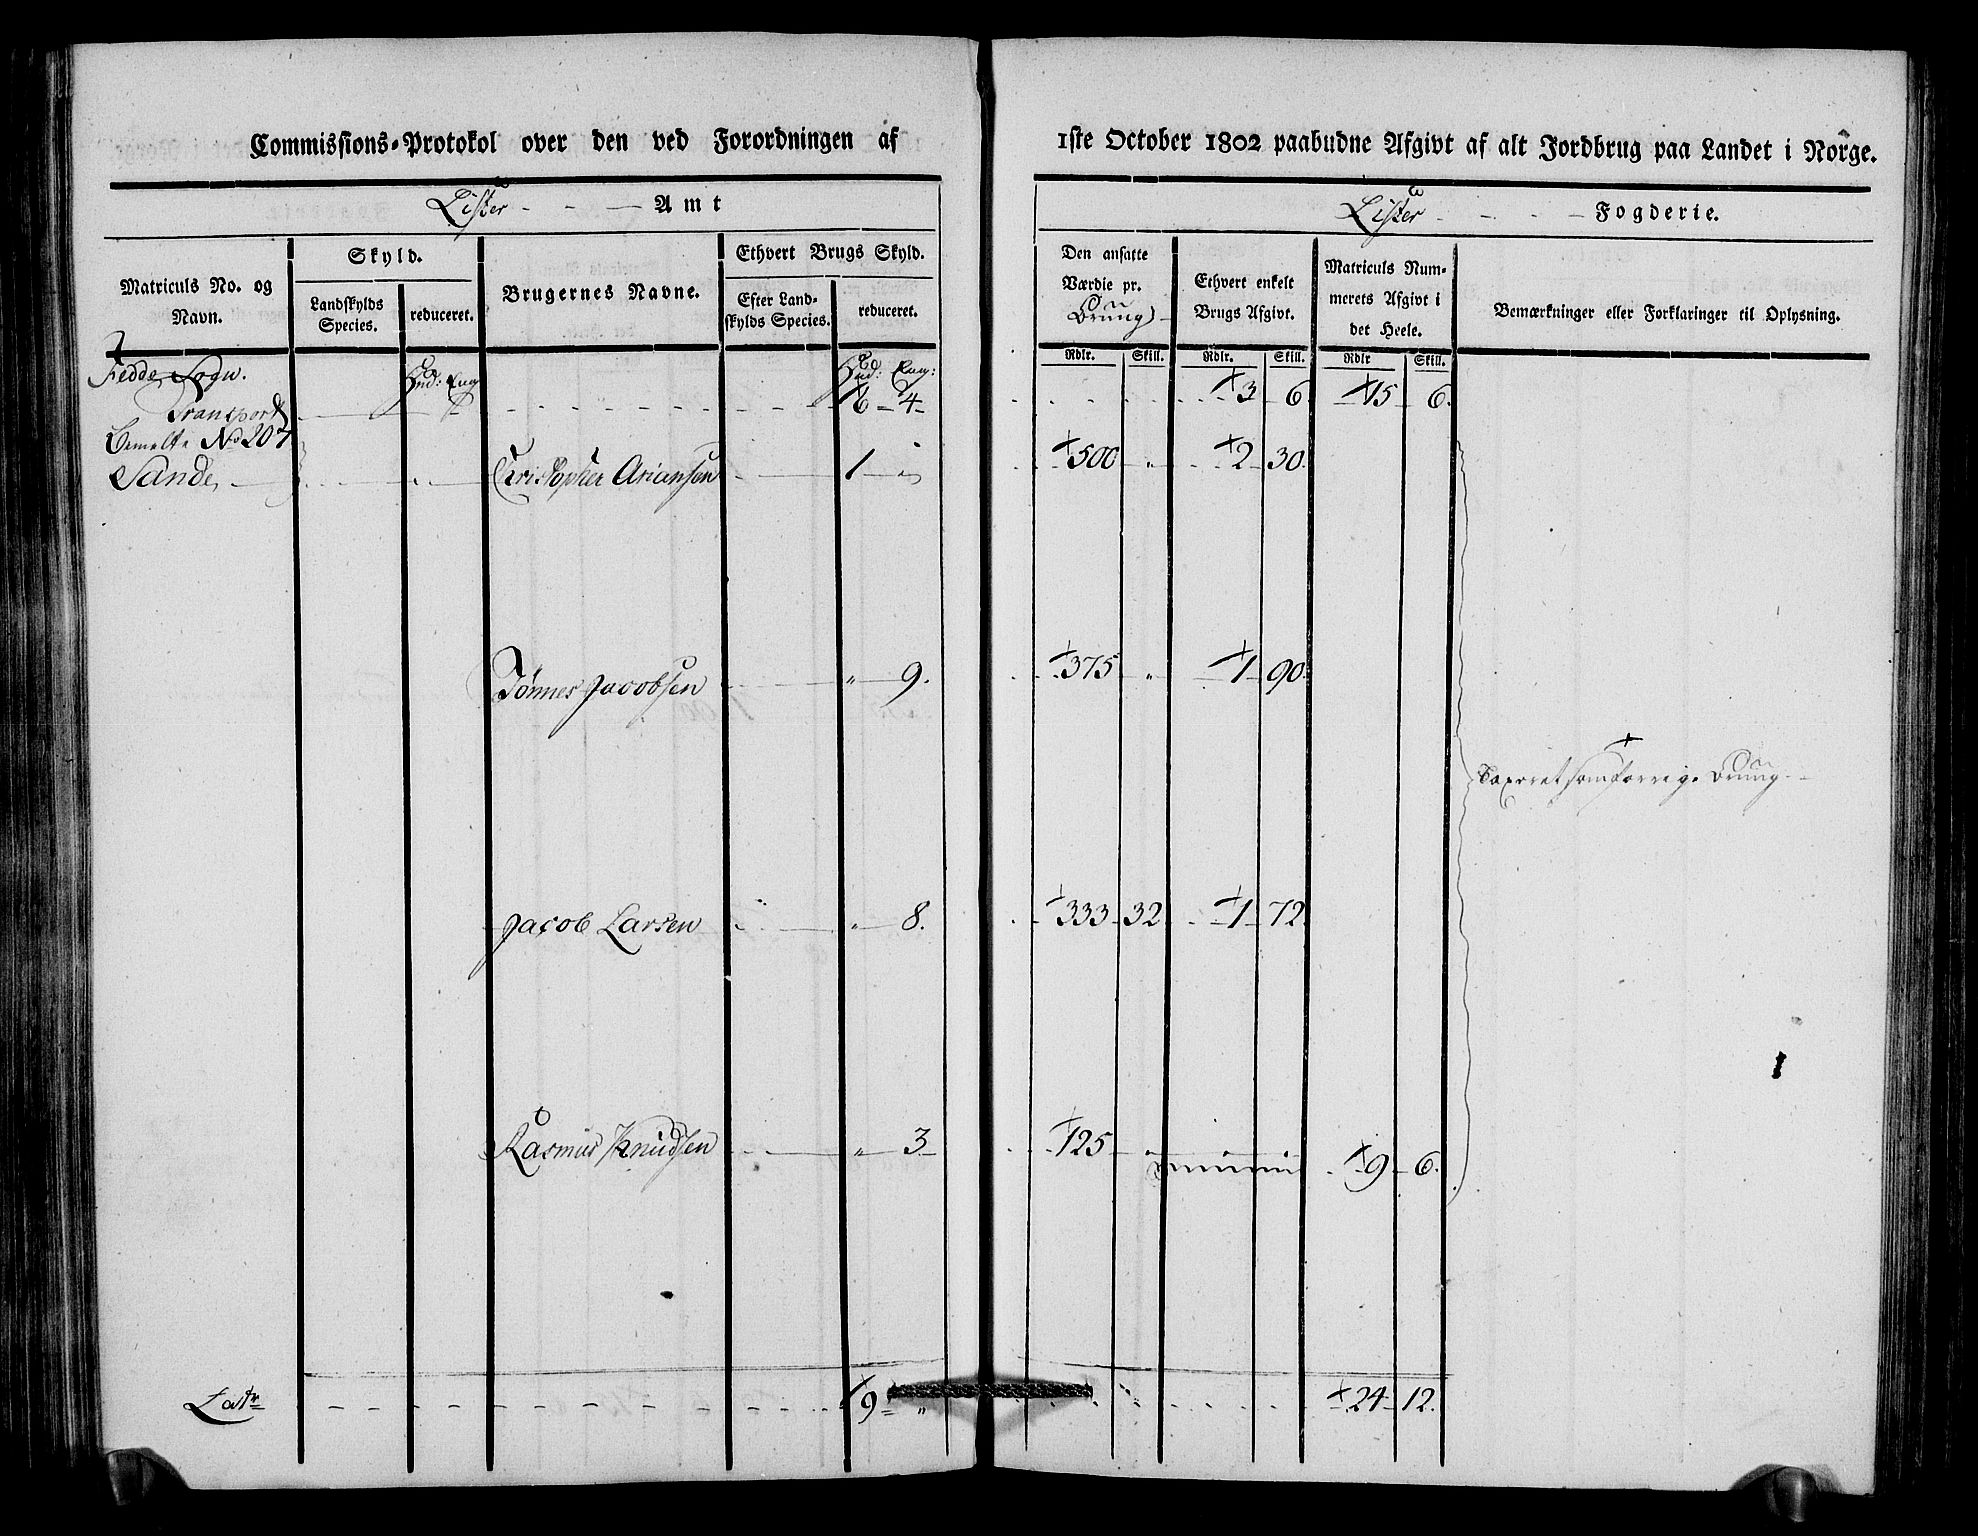 Commissions-Protokol over den ved Forordningen af
1ste October 1802 paabudne Afgivt af alt Jordbrug paa Landet i Norge.
Lister - - - Amt
Lister - - - - Fogderie.
Matriculs No. og Navn.
Skyld.
Landskylds Species.
reduceret.
Brugernes Navne.
Ethvert Brugs Skyld.
Efter Landskylds Species.
reduceret.
Den ansatte Værdie pr. Brug
Ethvert enkelt Brugs Afgivt.
Matriculs Nummerets Afgivt i det Heele.
Bemærkninger eller Forklaringer til Oplysning.
Rdlr. Skill. Rdlr. Skill. Rdlr Skill.
Fedde Sogn. Hud: Eng Hud: Eng:
Transport 6 - 4 - 3 - 6. 15 - 6.
Bemelte No 207
Sande, Christopher Ariansen - 1 - „ 500 - „ - 2 - 30.
Tønnes Jacobsen - „ - 9. 375 - „ - 1 - 90.
Taxeret som forrige Brug.
Jacob Larsen - „ - 8. 333 - 32 - 1 - 72.
Rasmus Knudsen - „ - 3 - 125 - „ 9 - 6.
Latr - 9 = „ 24 - 12.